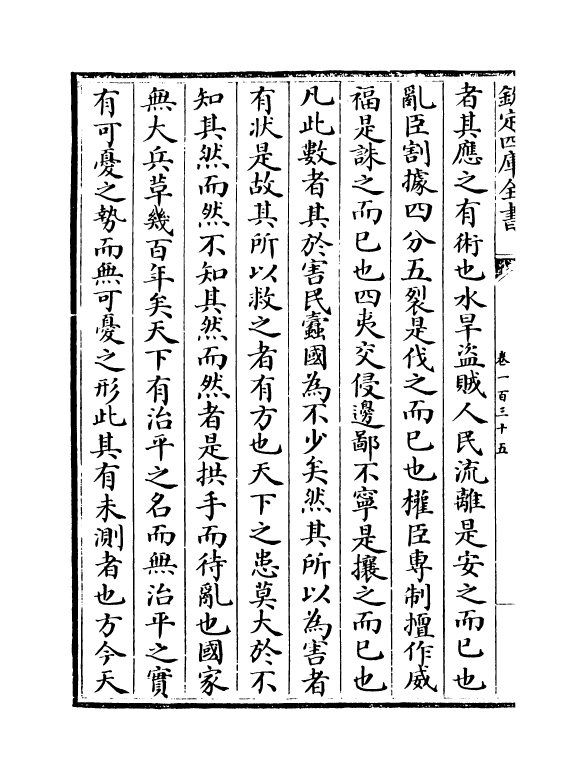 欽定四庫全書
卷一百三十五
者其應之有術也水旱盜賊人民流離是安之而已也
亂臣割據四分五裂是伐之而已也權臣専制擅作威
福是誅之而已也四夷交侵邊鄙不寧是攘之而已也
凡此數者其於害民蠧國為不少矣然其所以為害者
有狀是故其所以救之者有方也天下之患莫大於不
知其然而然不知其然而然者是拱手而待亂也國家
無大兵草幾百年矣天下有治平之名而無治平之實
有可憂之勢而無可憂之形此其有未測者也方今天